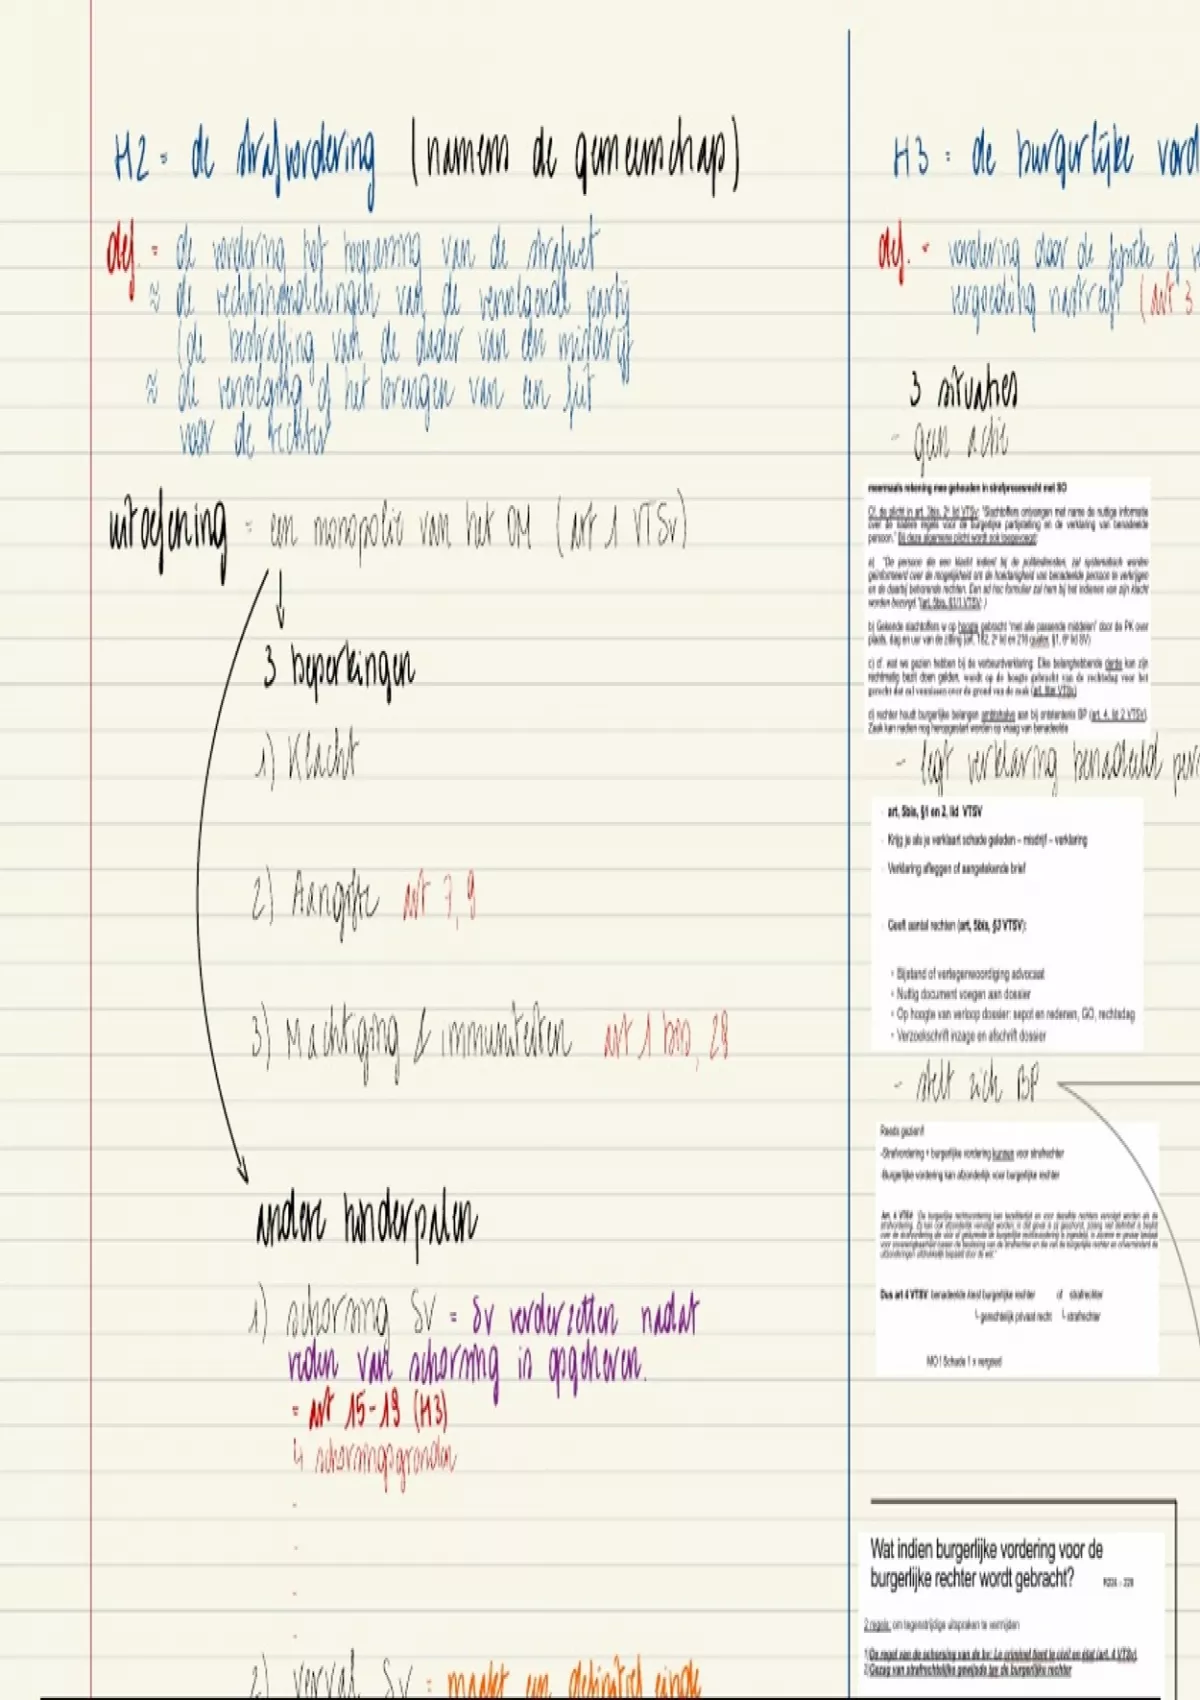 H2 = de strafvordering (namens de gemeenschap)
def. = de vordering tot toepassing van de strafwet
≈ de rechtshandelingen van de vervolgende partij
(de bestraffing van de dader van een misdrijf
≈ de vervolging of het brengen van een feit
voor de rechter
uitoefening = een monopolie van het OM (art 1 VTSv)
3 beperkingen
1) Klacht
2) Aangifte art 7, 9
3) Machtiging & immuniteiten art 1 bis, 28
andere hinderpalen
1) schorsing SV = SV verderzetten nadat
reden van schorsing is opgeheven.
= art 15-19 (H3)
4 schorsingsgronden
2) verval SV = maakt een definitief einde
H3 = de burgerlijke vord
def. = vordering door de fysieke of
vergoeding nastreeft (art 3
3 situaties
- geen actie
meermaals rekening mee gehouden in strafprocesrecht met SO
Cf. de plicht in art. 3bis, 2° lid VTSv: "Slachtoffers ontvangen met name de nuttige informatie
over de nadere regels voor de burgerlijke partijstelling en de verklaring van benadeelde
persoon." Bij deze algemene plicht wordt ook toegevoegd:
a) "De persoon die een klacht indient bij de politiediensten, zal systematisch worden
geïnformeerd over de mogelijkheid om de hoedanigheid van benadeelde persoon te verkrijgen
en de daarbij behorende rechten. Een ad hoc formulier zal hem bij het indienen van zijn klacht
worden bezorgd "(art. 5bis, §1/1 VTSV; )
b) Gekende slachtoffers w op hoogte gebracht "met alle passende middelen" door de PK over
plaats, dag en uur van de zitting (art. 182, 2° lid en 216 quater, §1, 6° lid SV)
c) cf. wat we gezien hebben bij de verbeurdverklaring: Elke belanghebbende derde kan zijn
rechtmatig bezit doen gelden, wordt op de hoogte gebracht van de rechtsdag voor het
gerecht dat zal vonnissen over de grond van de zaak (art. 5ter VTSv)
d) rechter houdt burgerlijke belangen ambtshalve aan bij ontstentenis BP (art. 4, lid 2 VTSV).
Zaak kan nadien nog heropgestart worden op vraag van benadeelde
- legt verklaring benadeeld pers
art, 5bis, §1 en 2, lid VTSV
Krijg je als je verklaart schade geleden – misdrijf – verklaring
Verklaring afleggen of aangetekende brief
Geeft aantal rechten (art, 5bis, §3 VTSV):
◦ Bijstand of vertegenwoordiging advocaat
◦ Nuttig document voegen aan dossier
◦ Op hoogte van verloop dossier: sepot en redenen, GO, rechtsdag
◦ Verzoekschrift inzage en afschrift dossier
- stelt zich BP
Reeds gezien!!
-Strafvordering + burgerlijke vordering kunnen voor strafrechter
-Burgerlijke vordering kan afzonderlijk voor burgerlijke rechter
Dus art 4 VTSV benadeelde kiest burgerlijke rechter of strafrechter
gerechtelijk privaat recht strafrechter
MO ! Schade 1 x vergoed
Wat indien burgerlijke vordering voor de
burgerlijke rechter wordt gebracht?
2 regels: om tegenstrijdige uitspraken te vermijden
1) De regel van de schorsing van de bv: Le criminel tient le civil en état (art. 4 VTSv)
2) Gezag van strafrechtelijke gewijsde tav de burgerlijke rechter